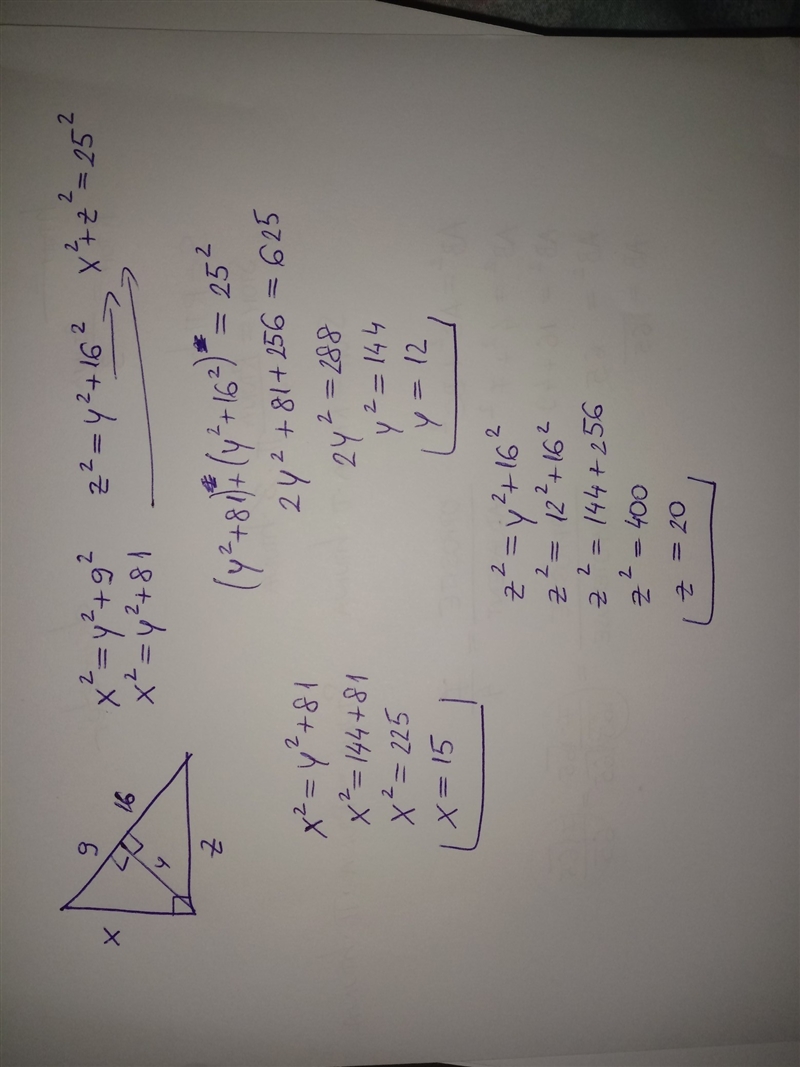 x² = y² + 9²   z² = y² + 16²   x² + z² = 25²
x² = y² + 81
9
16
x
y
z
(y² + 81) + (y² + 16²) = 25²
2y² + 81 + 256 = 625
2y² = 288
y² = 144
y = 12
x² = y² + 81
x² = 144 + 81
x² = 225
x = 15
z² = y² + 16²
z² = 12² + 16²
z² = 144 + 256
z² = 400
z = 20